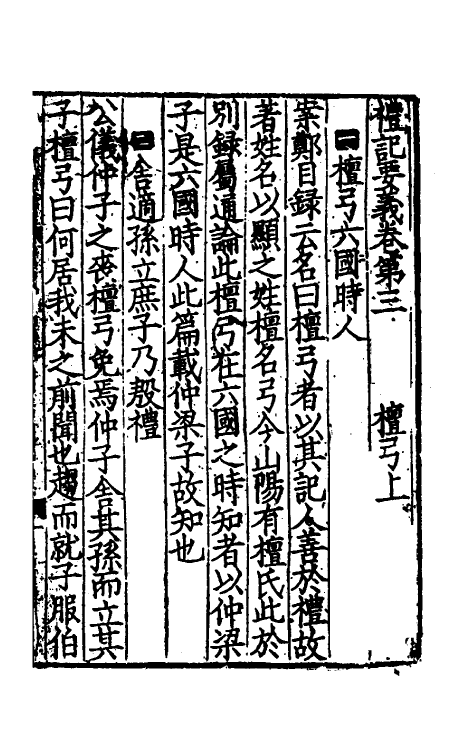 禮記要義卷第三　檀弓上
一檀弓六國時人
案鄭目録云名曰檀弓者以其記人善於禮故
著姓名以顯之姓檀名弓今山陽有檀氏此於
別録屬通論此檀弓在六國之時知者以仲梁
子是六國時人此篇載仲梁子故知也
二舍適孫立庶子乃殷禮
公儀仲子之喪檀弓免焉仲子舎其孫而立其
子檀弓曰何居我未之前聞也趨而就子服伯